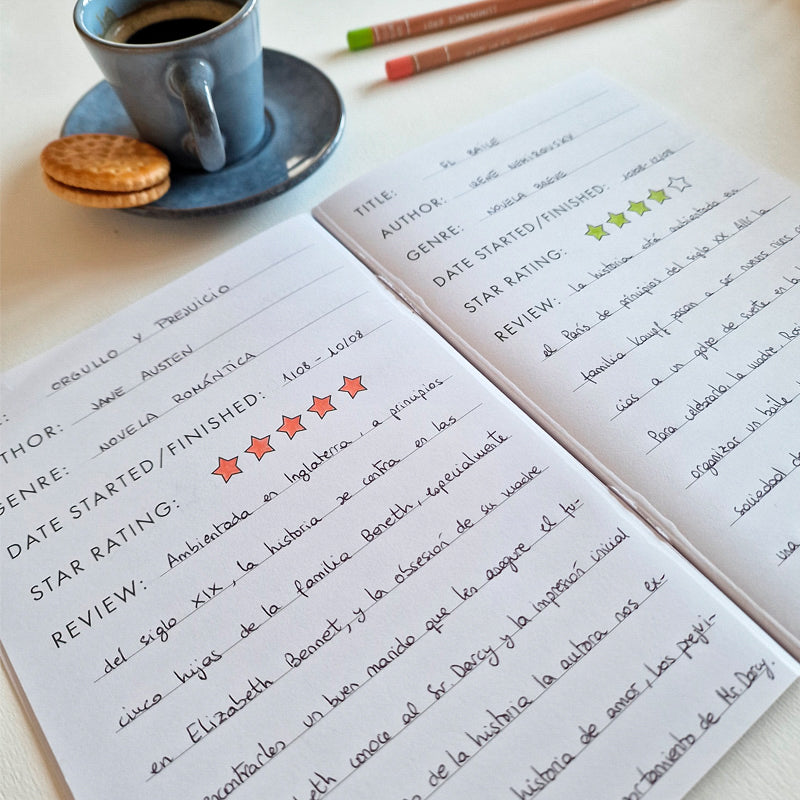 ORGULLO Y PREJUICIO
THOR: JANE AUSTEN
GENRE: NOVELA ROMÁNTICA
DATE STARTED/FINISHED: 1/08 - 10/08
STAR RATING:
REVIEW: Ambientada en Inglaterra, a principios
del siglo XIX, la historia se centra en las
cinco hijas de la familia Benneth, especialmente
en Elizabeth Bennet, y la obsesión de su madre
encontrarles un buen marido que les asegure el fu-
beth conoce al Sr Darcy y la impresión inicial
de la historia la autora nos ex-
historia de amor, los preju-
portamiento de Mr. Darcy.
TITLE: EL BAILE
AUTHOR: IRENE NEMIROVSKY
GENRE: NOVELA BREVE
DATE STARTED/FINISHED:
STAR RATING:
REVIEW: La historia está ambientada en
el París de principios del siglo XX. Allí la
familia Kampf pasan a ser nuevos ricos
cias a un golpe de suerte en la
Para celebrarlo la madre, Ros
organizar un baile
sociedad de
una